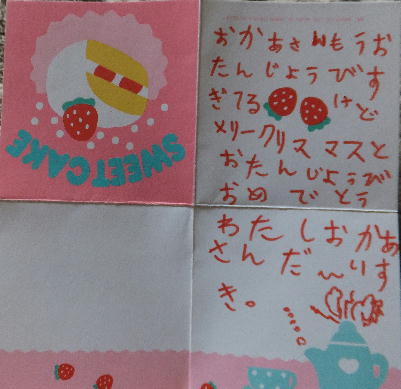 SWEET CAKE
おかあさんもうお
たんじょうびす
ぎてるけど
メリークリスマスと
おたんじょうび
おめでとう
わたしおかあ
さんだ〜いす
き。